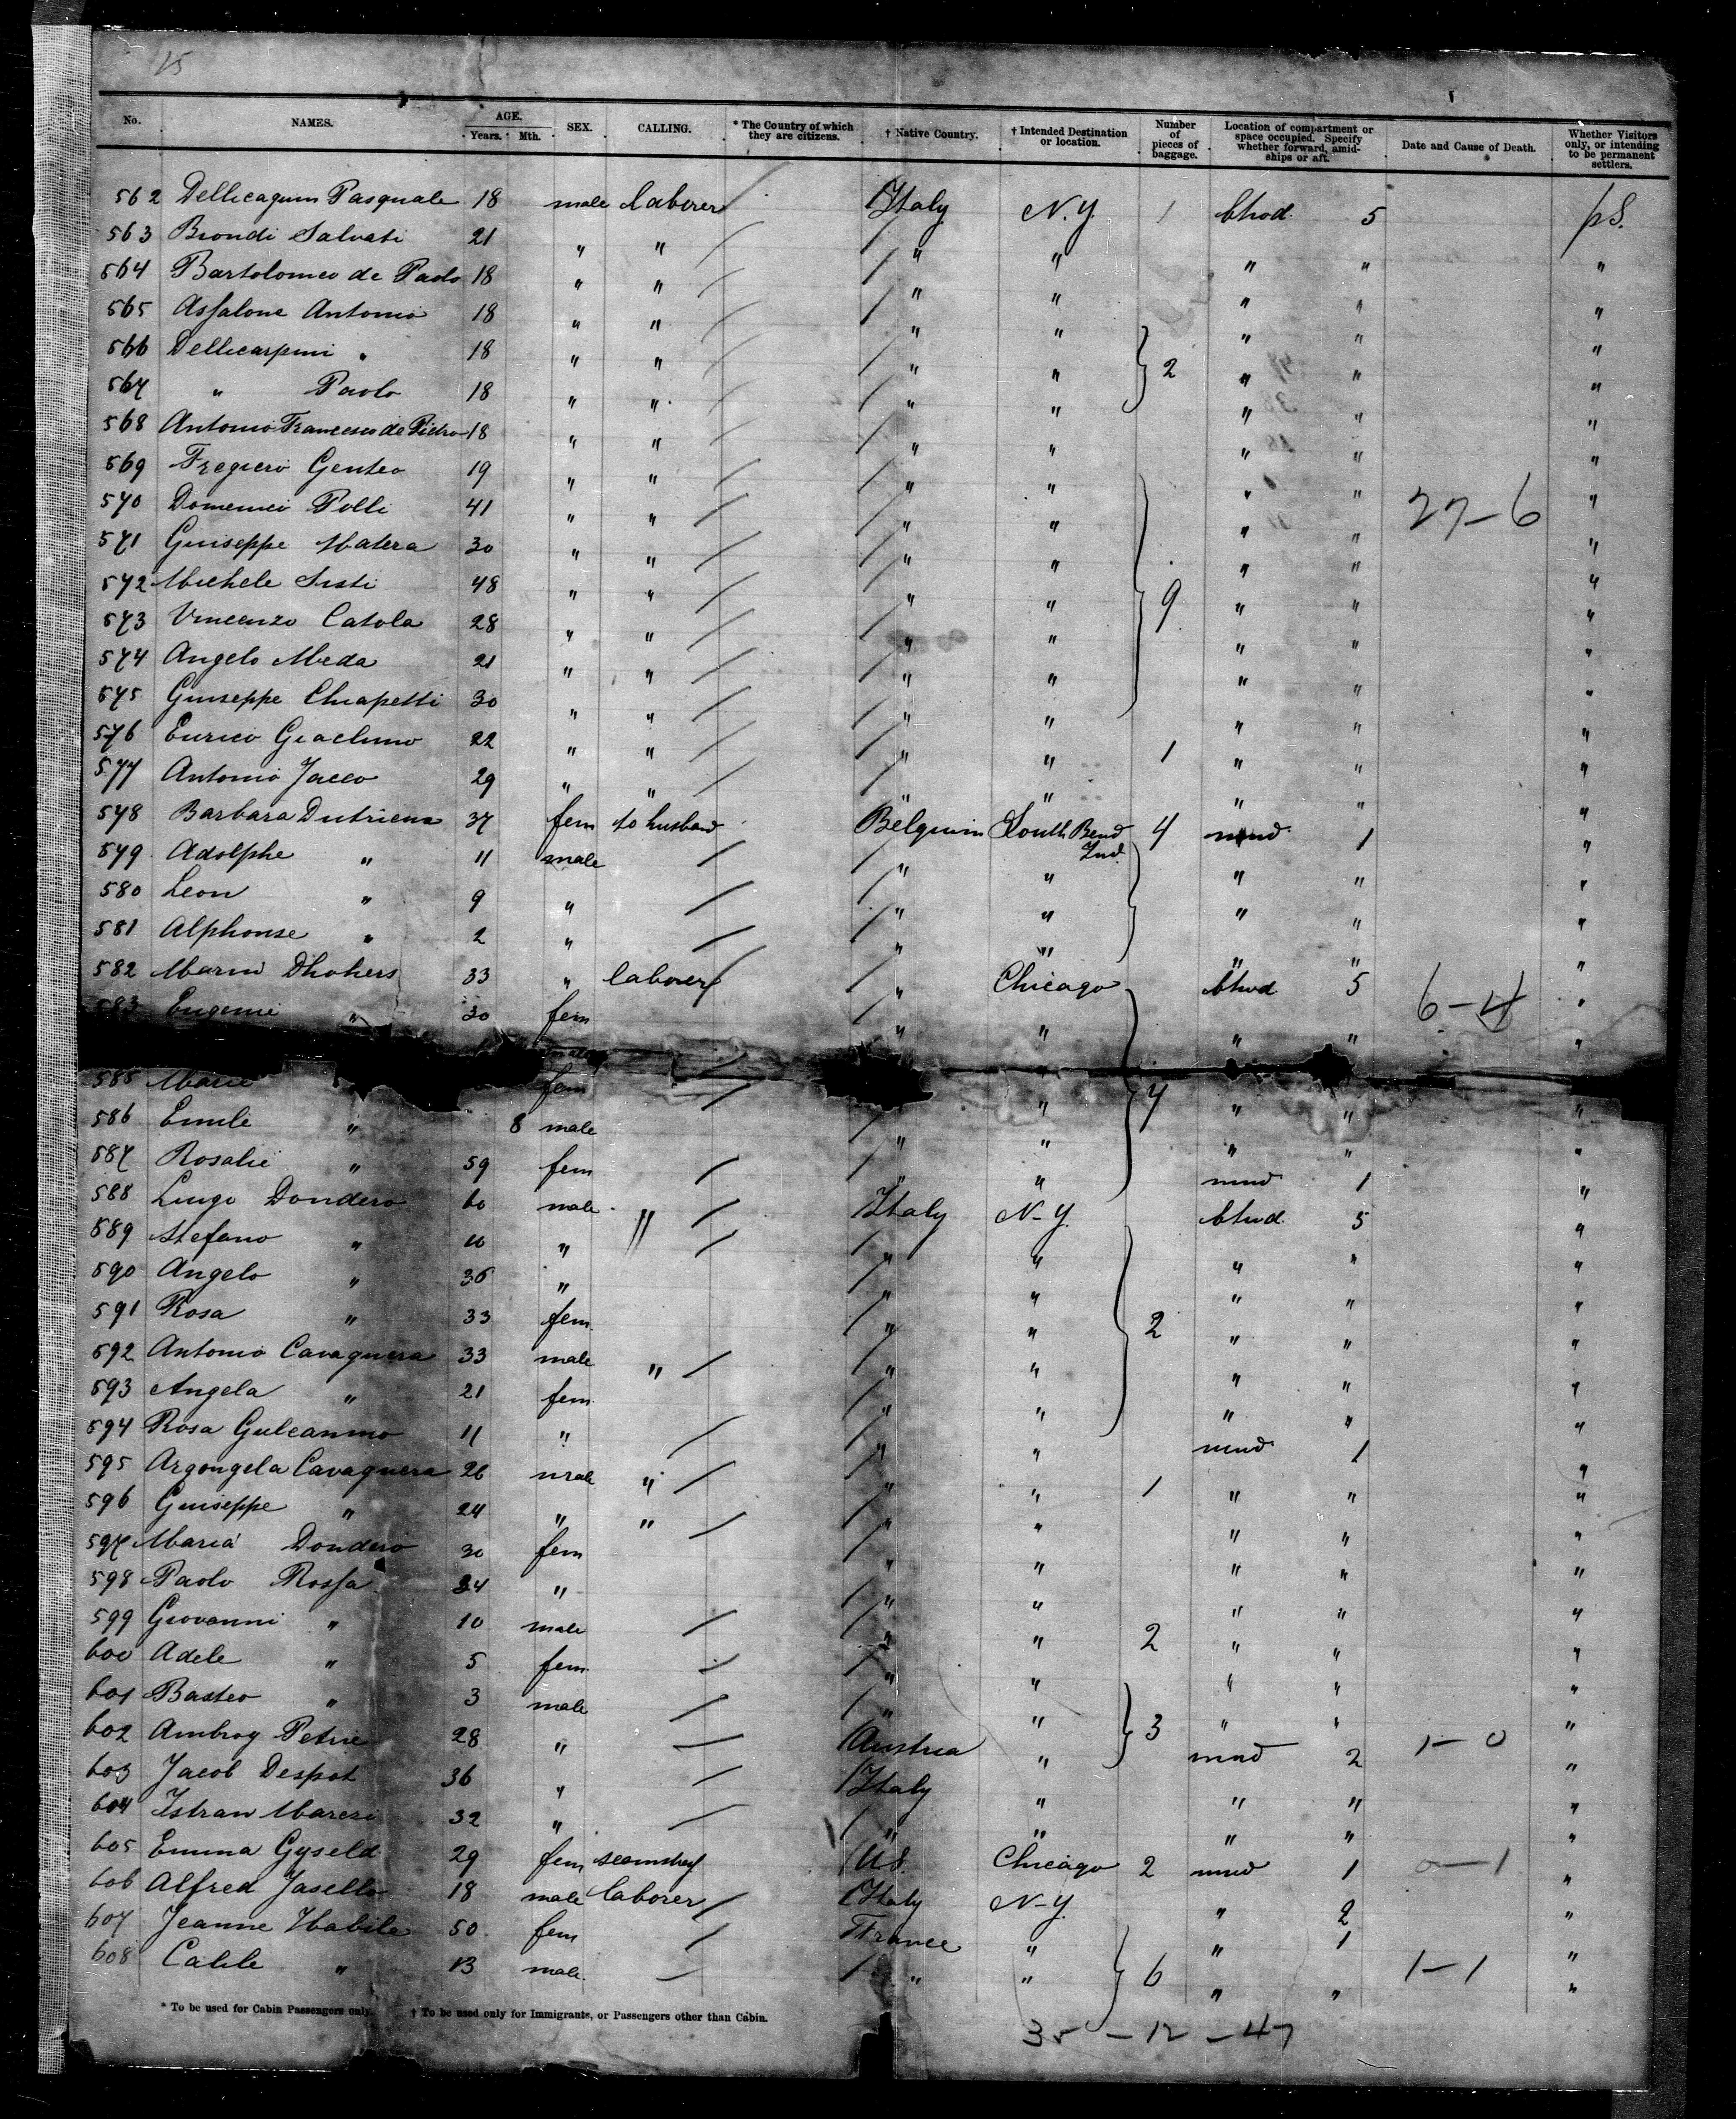 15
No. NAMES. AGE. Years. Mth. SEX. CALLING. * The Country of which they are citizens. † Native Country. † Intended Destination or location. Number of pieces of baggage. Location of compartment or space occupied. Specify whether forward, amidships or aft. Date and Cause of Death. Whether Visitors only, or intending to be permanent settlers.
562 Dellicagum Pasquale 18 male laborer / Italy N.Y. 1 bhvd. 5 pS.
563 Biondi Salvati 21 " " / " " " " "
564 Bartolomeo de Paolo 18 " " / " " " " "
565 Assalone Antonio 18 " " / " " " " "
566 Dellicarpini " 18 " " / " " 2 " " "
567 " Paolo 18 " " / " " " " "
568 Antonio Francesco de Pietro 18 " " / " " " " "
569 Fregiero Genteo 19 " " / " " " " "
570 Domenico Polli 41 " " / " " " " 27-6 "
571 Guiseppe Matera 30 " " / " " " " "
572 Michele Sisti 48 " " / " " 9 " " "
573 Vincenzo Catola 28 " " / " " " " "
574 Angelo Meda 21 " " / " " " " "
575 Guiseppe Chiapetti 30 " " / " " " " "
576 Enrico Giachino 22 " " / " " 1 " " "
577 Antonio Jacco 29 " " / " " " " "
578 Barbara Dutrieux 37 fem to husband Belguim South Bend Ind. 4 mnd 1 "
579 Adolphe " 11 male / " " " " "
580 Leon " 9 " / " " " " "
581 Alphonse " 2 " / " " " " "
582 Marin Dhohers 33 " laborer / " Chicago bhvd 5 6-4 "
583 Eugenie " 30 fem " " " " "
585 Marie fem / " 4 " " "
586 Emile " 8 male " " " " "
587 Rosalie " 59 fem / " " mnd 1 "
588 Luigo Dondero 60 male " / Italy N-Y. bhvd. 5 "
589 Stefano " 10 " / " " " " "
590 Angelo " 36 " " " " " "
591 Rosa " 33 fem. " " 2 " " "
592 Antonio Cavagnera 33 male " / " " " " "
593 Angela " 21 fem. " " " " "
594 Rosa Guleanmo 11 " / " " mnd 1 "
595 Argongela Cavagnera 26 male " / " " 1 " " "
596 Guiseppe " 24 " " / " " " " "
597 Maria Dondero 30 fem " " " " "
598 Paolo Rossa 34 " " " " " "
599 Giovanni " 10 male / " " 2 " " "
600 Adele " 5 fem. / " " " " "
601 Basteo " 3 male / " " " " "
602 Ambroy Petrie 28 " / Austria " 3 mnd 2 1-0 "
603 Jacob Despot 36 " / Italy " " " "
604 Istran Marezi 32 " / " " " " "
605 Emma Gyseld 29 fem seamstress U.S. Chicago 2 mnd 1 0-1 "
606 Alfred Jasello 18 male laborer / Italy N-Y. " 2 "
607 Jeanne Habile 50 fem / France " " 1 "
608 Calile " 13 male. / " " 6 " " 1-1 "
* To be used for Cabin Passengers only. † To be used only for Immigrants, or Passengers other than Cabin.
35 - 12 - 47